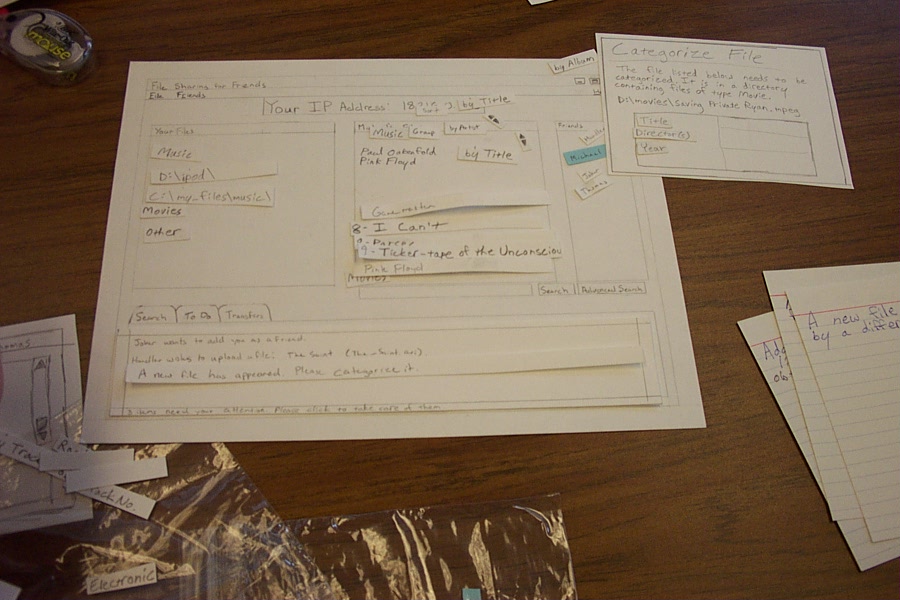 mouse
by Album
File Sharing for Friends
File Friends
Your IP Address: 18
by Title
Your Files
Music
D:\ipod\
C:\my_files\music\
Movies
Other
Music
Group
by Artist
Paul Oakenfold
Pink Floyd
by Title
Gunnmaster
8- I Can't
9- Ticker-tape of the Unconsciou
Pink Floyd
Movies
Search
Advanced Search
Friends
Michael
John
Thomas
Search
To Do
Transfers
Joker wants to add you as a friend.
Handler wishes to upload a file: The Saint (The-Saint.avi)
A new file has appeared. Please categorize it.
3 items need your attention. Please click to take care of them
Categorize File
The file listed below needs to be
categorized. It is in a directory
containing files of type Movie.
D:\movies\Saving Private Ryan.mpeg
Title
Director(s)
Year
A new file
by a differ
Track No.
Electronic